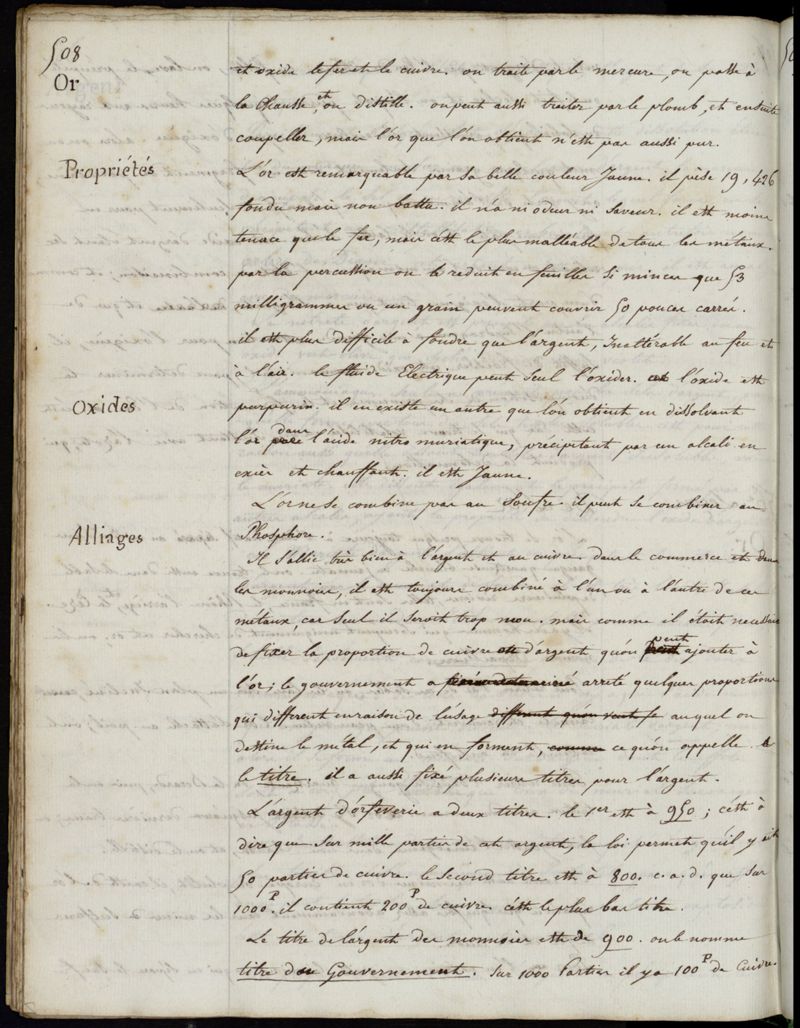 508
Or
et oxide le fer et le cuivre. on traite par le mercure, on passe à
la Chausse, et on distille. on peut aussi traiter par le plomb, et ensuite
coupeller, mais l'or que l'on obtient n'est pas aussi pur.
Propriétés
L'or est remarquable par sa belle couleur Jaune. il pèse 19,426
fondu mais non battu. il n'a ni odeur ni saveur. il est moins
tenace que le fer, mais c'est le plus malléable de tous les métaux.
par la percussion on le reduit en feuilles si minces que 53
milligrammes ou un grain peuvent couvrir 50 pouces carrés.
il est plus difficile à fondre que l'argent, Inaltérable au feu et
à l'air. le fluide Electrique peut seul l'oxider. l'oxide est
Oxides
purpurin. il en existe un autre que l'on obtient en dissolvant
l'or dans l'acide nitro muriatique, précipitant par un alcali en
excès et chauffant. il est Jaune.
L'or ne se combine pas au Soufre. il peut se combiner au
Phosphore.
Alliages
Il s'allie très bien à l'argent et au cuivre. dans le commerce et dans
les monnoies, il est toujours combiné à l'un ou à l'autre de ces
métaux, car seul il seroit trop mou. mais comme il étoit necessaire
de fixer la proportion de cuivre ou d'argent qu'on peut ajouter à
l'or; le gouvernement a arreté quelques proportions
qui different en raison de l'usage auquel on
destine le métal, et qui en forment, ce qu'on appelle
le titre. il a aussi fixé plusieurs titres pour l'argent.
L'argent d'orfeverie a deux titres. le 1er est à 950; c'est à
dire que sur mille parties de cet argent, la loi permet qu'il y ait
50 parties de cuivre. le second titre est à 800. c.a.d. que sur
1000P. il contient 200P de cuivre. c'est le plus bas titre.
Le titre de l'argent des monnoies est de 900. on le nomme
titre du Gouvernement. sur 1000 Parties il y a 100P de Cuivre.